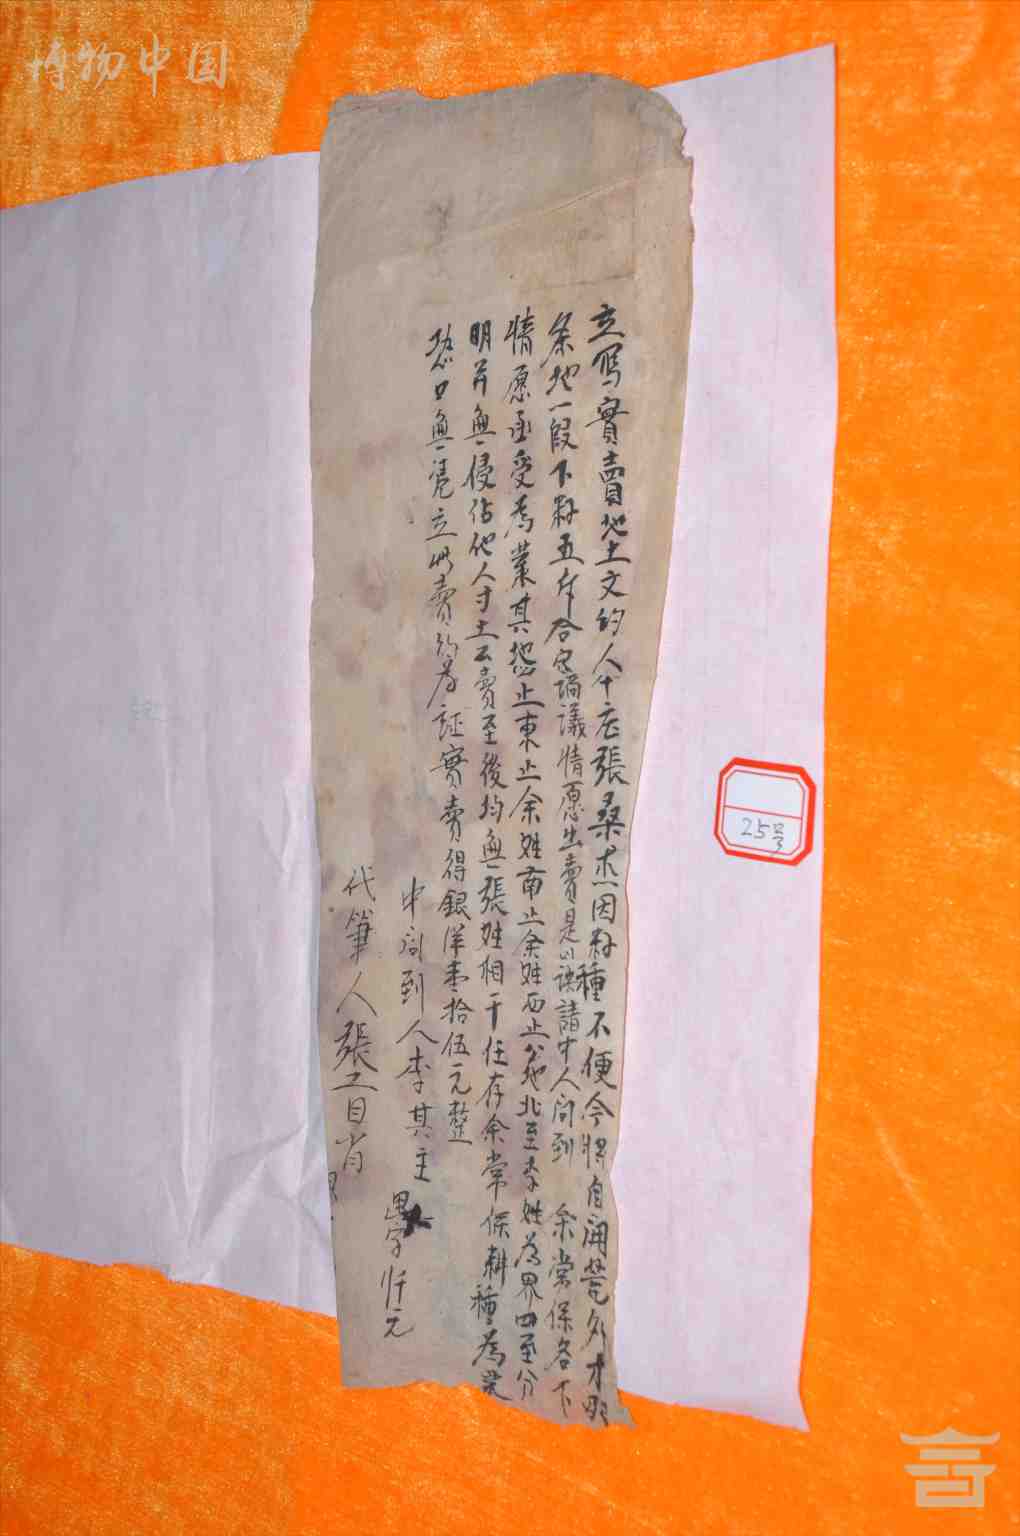 博物中国
立写實賣地土文約人 張桑杰因 種不便今將自開荒
条地一段下籽五斤合 議情愿出賣是以 請中人问到 余常保名下
情愿承受為業其地 止東止余姓南止余姓西止公地北至李姓為界四至分
明并無侵佔他人寸土 賣至後均無張姓相干任存余常保耕種為業
恐口無凭立此賣約為証實賣得銀洋壹拾伍元整
中间到人李其主
画字 元
代筆人張 自省
25号